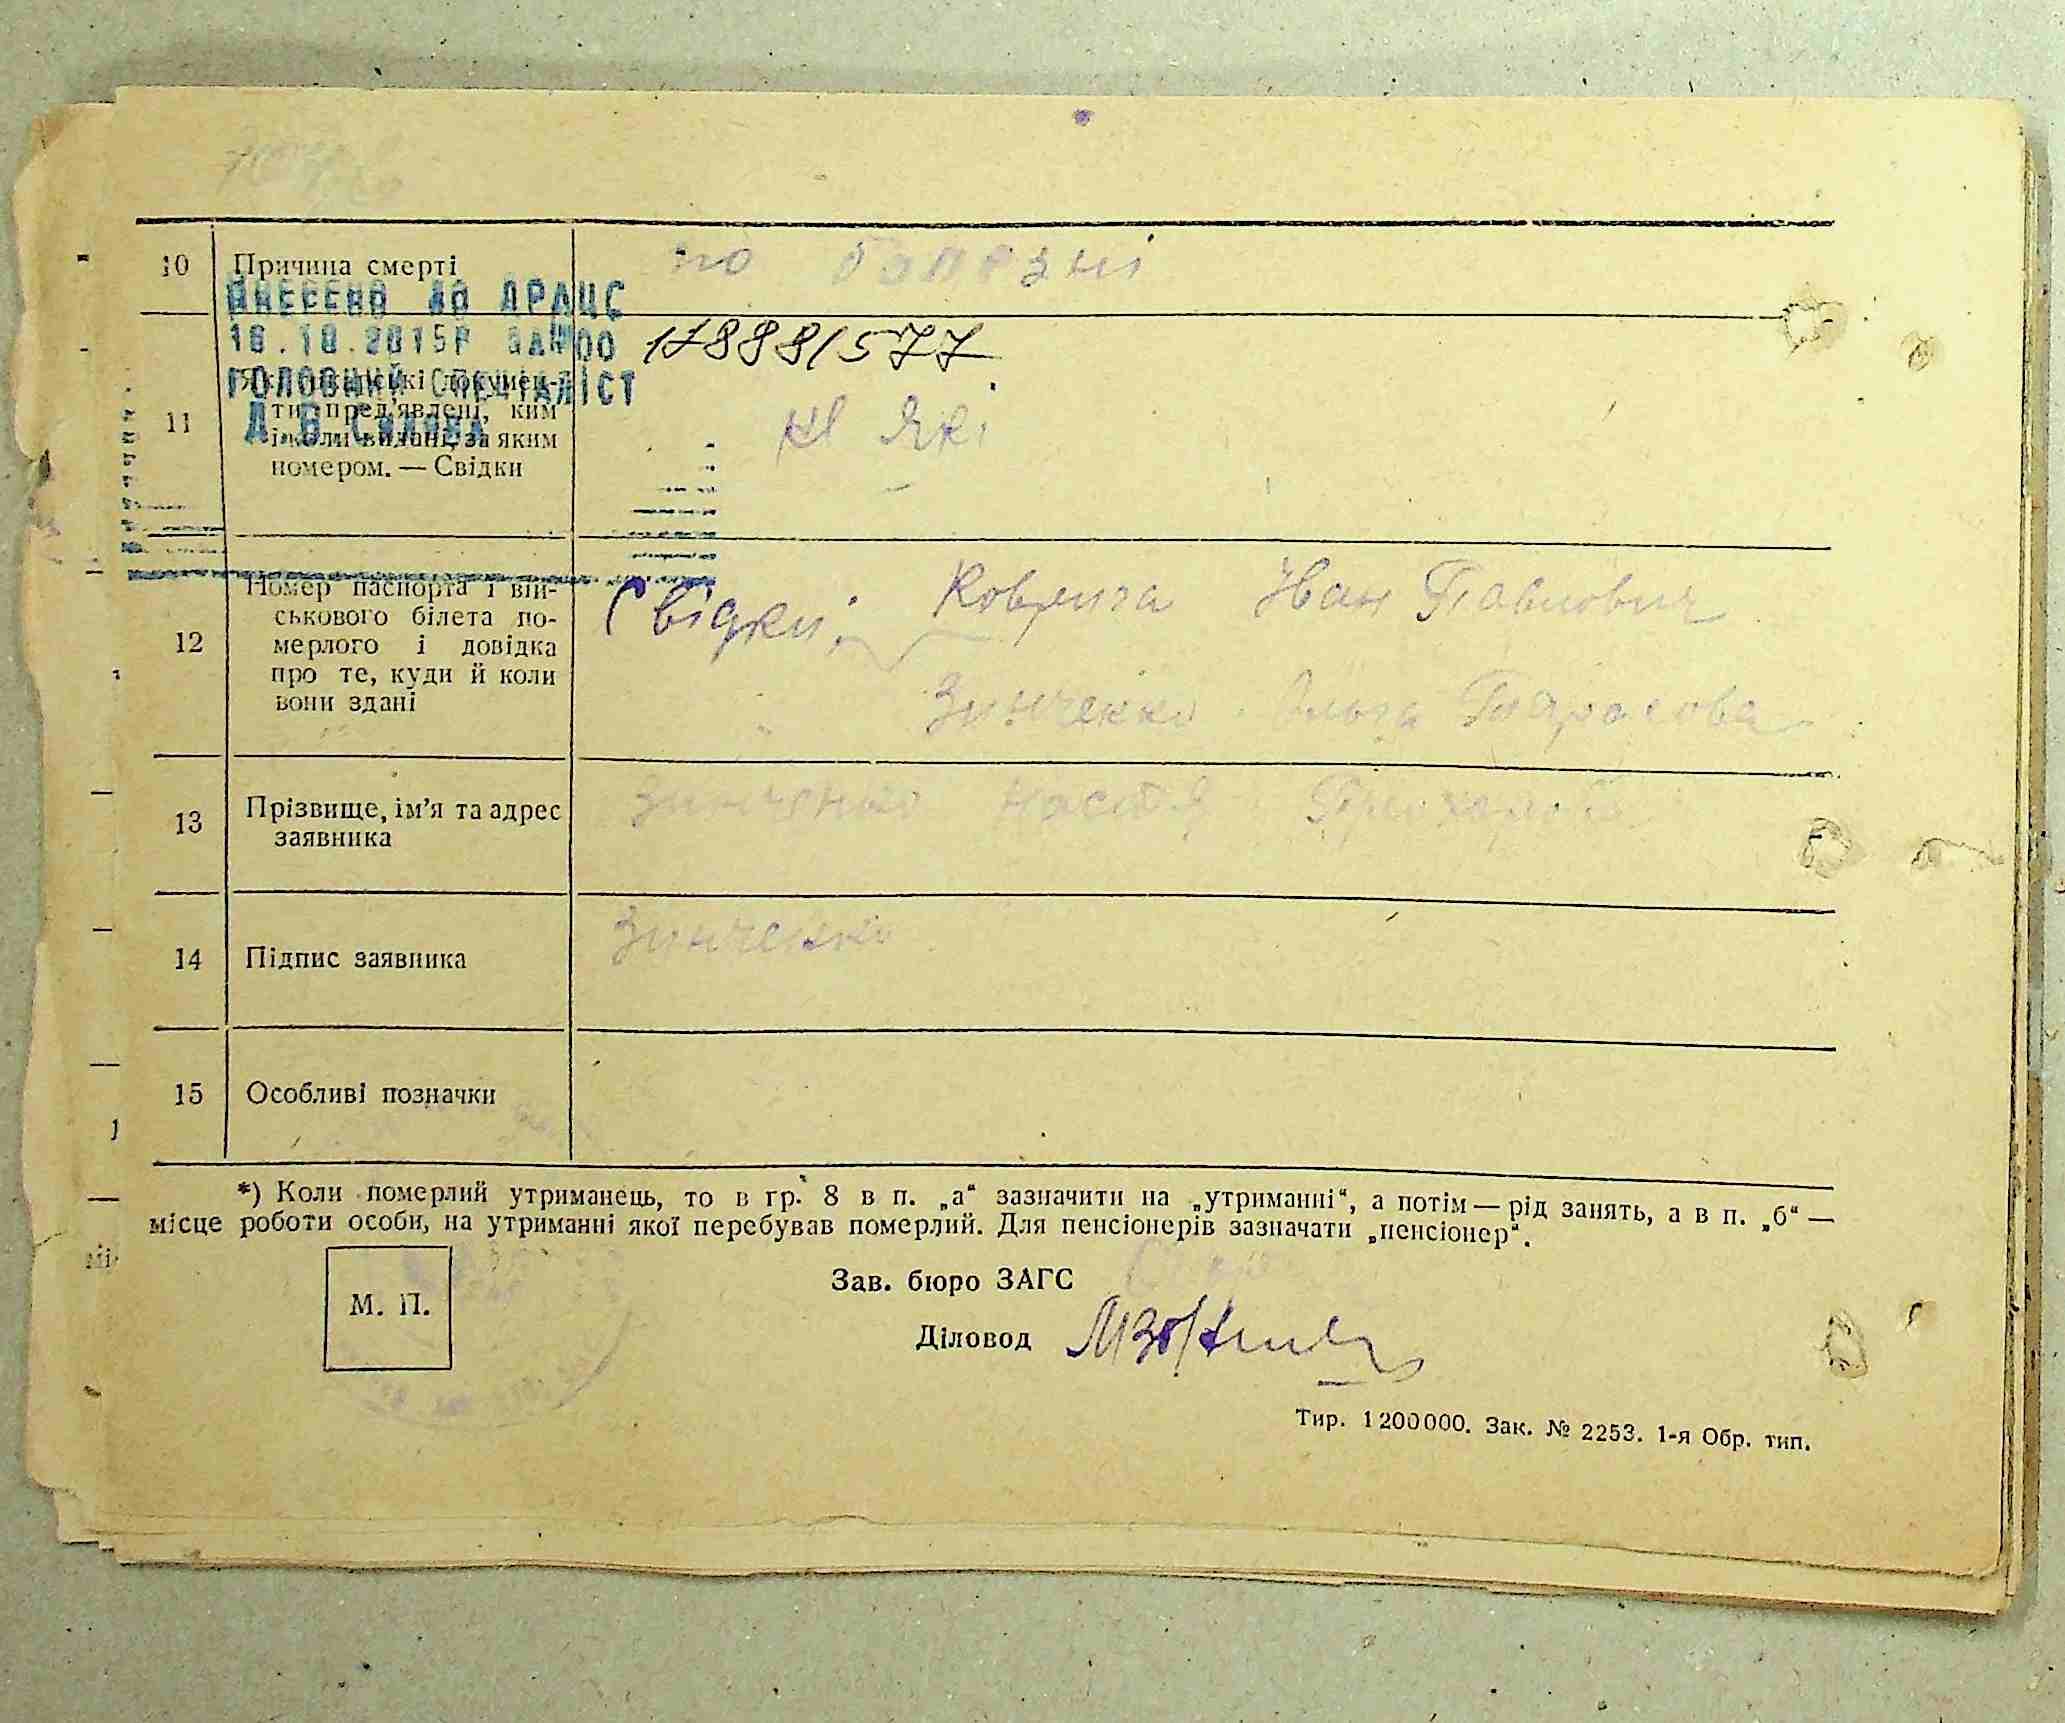 10 Причина смерті по болезні
ВНЕСЕНО ДО ДРАЦС
16.10.2015Р ЗА№00 178881577
ГОЛОВНИЙ СПЕЦІАЛІСТ
11 Які лікарські докумен-
ти пред'явлені, ким
і коли видані, за яким
номером. — Свідки
12 Номер паспорта і вій-
ськового білета по-
мерлого і довідка
про те, куди й коли
вони здані
Свідки: Іван Павлович
Зинченко Ольга Тарасова
13 Прізвище, ім'я та адрес
заявника
Зинченко Настя
14 Підпис заявника Зинченко
15 Особливі позначки
*) Коли померлий утриманець, то в гр. 8 в п. „а“ зазначити на „утриманні“, а потім — рід занять, а в п. „б“ —
місце роботи особи, на утриманні якої перебував померлий. Для пенсіонерів зазначати „пенсіонер“.
М. П.
Зав. бюро ЗАГС
Діловод
Тир. 1200000. Зак. № 2253. 1-я Обр. тип.